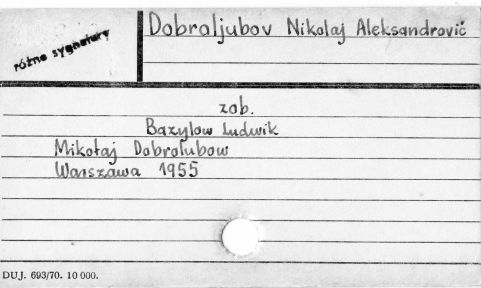 Dobroljubov Nikolaj Aleksandrovič
różne sygnatury
zob.
Bazylow Ludwik
Mikołaj Dobrolubow
Warszawa 1955
DUJ. 693/70. 10 000.